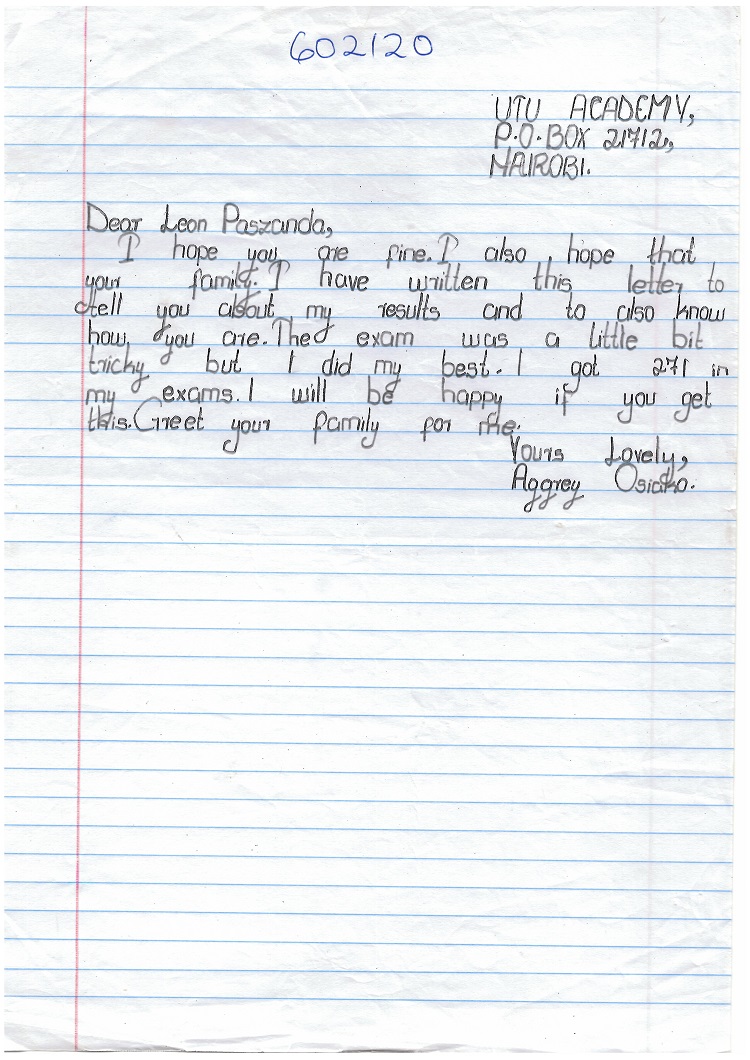 602120
UTU ACADEMY,
P.O.BOX 21712,
NAIROBI.
Dear Leon Paszanda,
I hope you are fine. I also hope that
your family. I have written this letter to
tell you about my results and to also know
how you are. The exam was a little bit
tricky but I did my best. I got 271 in
my exams. I will be happy if you get
this. Greet your family for me.
Yours Lovely,
Aggrey Osiako.